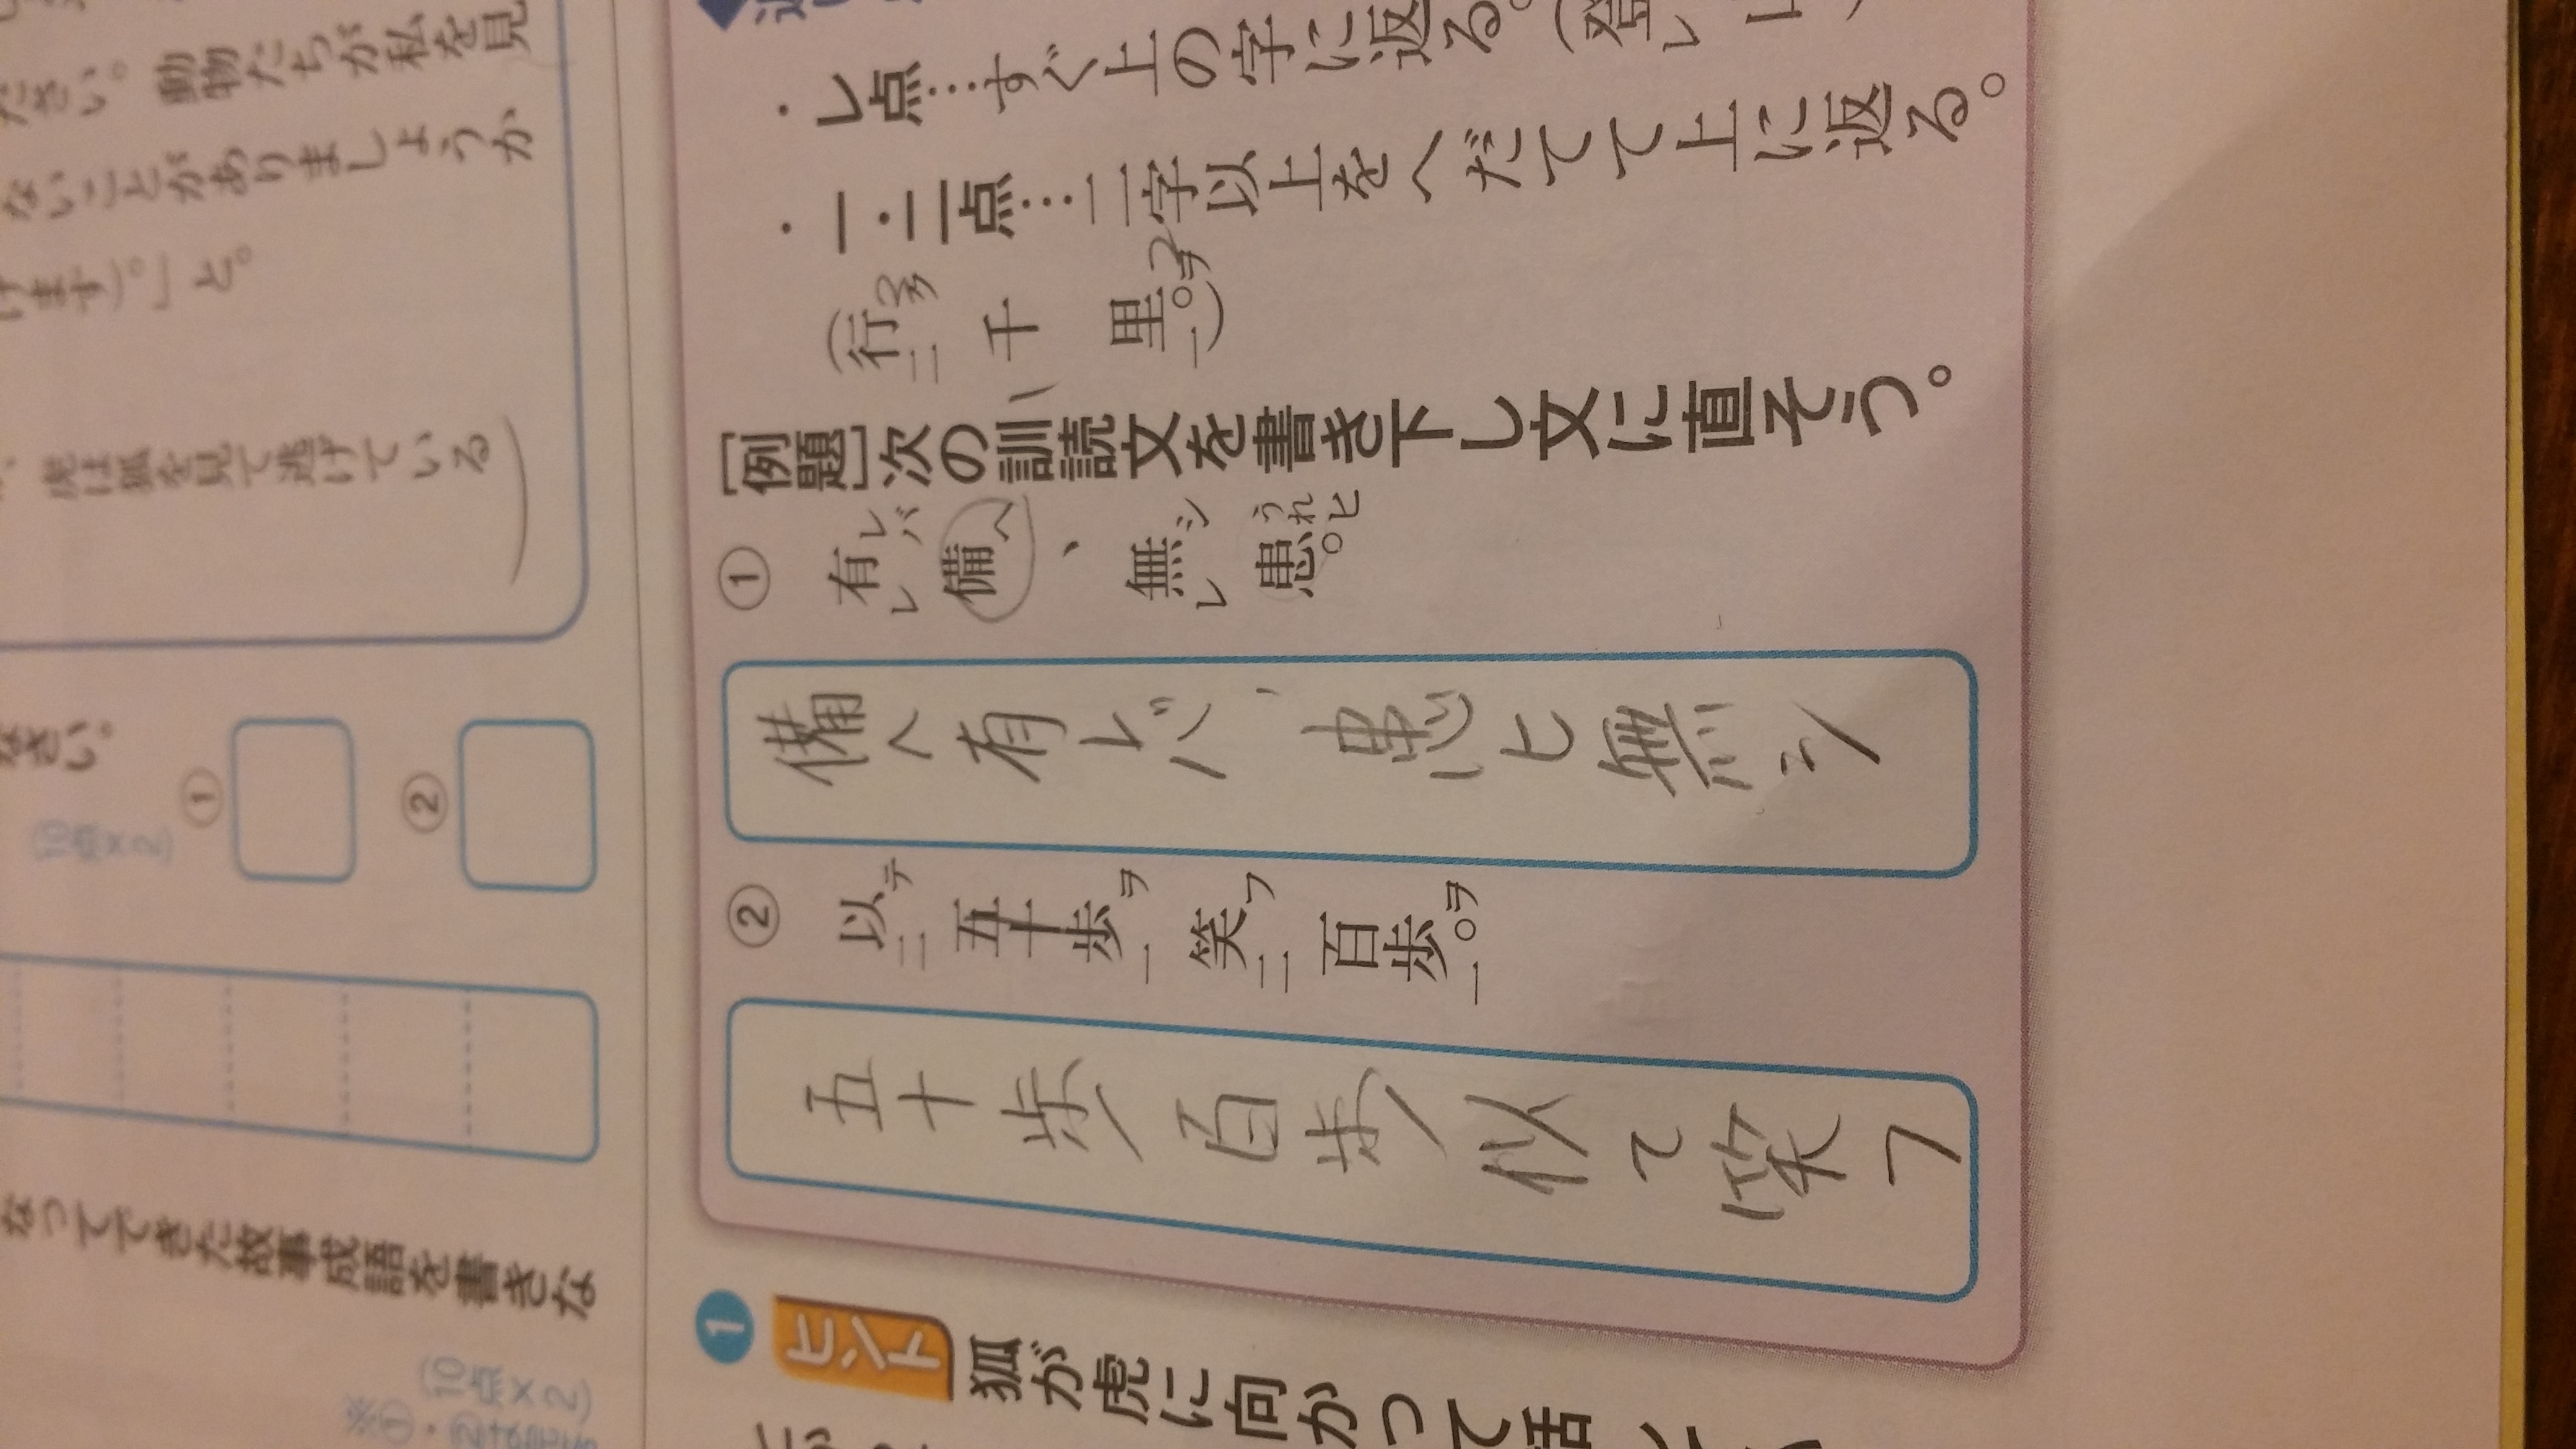 ・レ点…すぐ上の字に返る。(登レ
・一・二点…二字以上をへだてて上に返る。
(行二千里一ヲ。)
[例題]次の訓読文を書き下し文に直そう。
① 有レバレ備ヘ、無シレ患うれヒ。
備へ有レバ、患ヒ無シ
② 以テ二五十歩ヲ一笑フ二百歩ヲ一。
五十歩百歩以て笑フ
ださい。動物たちが私を見
ないことがありましょうか
げます)。」と。
虎は狐を見て逃げている
なさい。
(10点×2)
①
②
なってできた故事成語を書きな
(10点×2)
※①・②は
1 ヒント 狐が虎に向かって話